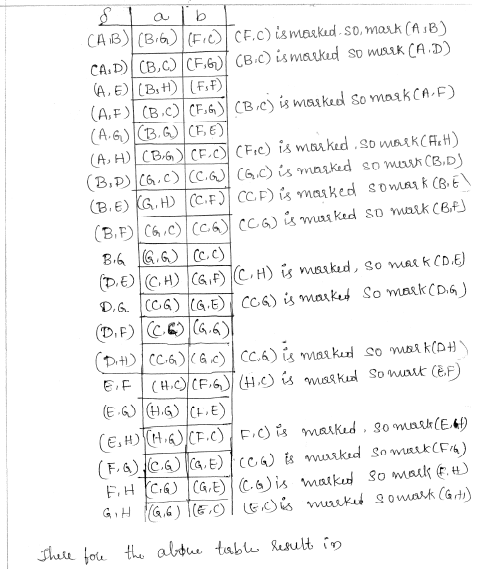 δ a b
(A,B) (B,G) (F,C) (F,C) is marked. so, mark (A,B)
(A,D) (B,C) (F,G) (B,C) is marked so mark (A,D)
(A,E) (B,H) (F,F)
(A,F) (B,C) (F,G) (B,C) is marked so mark (A,F)
(A,G) (B,G) (F,E)
(A,H) (B,G) (F,C) (F,C) is marked. so mark (A,H)
(B,D) (G,C) (C,G) (G,C) is marked so mark (B,D)
(B,E) (G,H) (C,F) (C,F) is marked so mark (B,E)
(B,F) (G,C) (C,G) (C,G) is marked so mark (B,F)
B,G (G,G) (C,C)
(D,E) (C,H) (G,F) (C,H) is marked, so mark (D,E)
D,G. (C,G) (G,E) (C,G) is marked so mark (D,G)
(D,F) (C,C) (G,G)
(D,H) (C,G) (G,C) (C,G) is marked so mark (DH)
E,F (H,C) (F,G) (H,C) is marked so mark (E,F)
(E,G) (H,G) (F,E)
(E,H) (H,G) (F,C) F,C) is marked, so mark (E,H)
(F,G) (C,G) (G,E) (C,G) is marked so mark (F,G)
F,H (C,G) (G,E) (C,G) is marked so mark (F,H)
G,H (G,G) (E,C) (E,C) is marked so mark (G,H)
There fore the above table result in